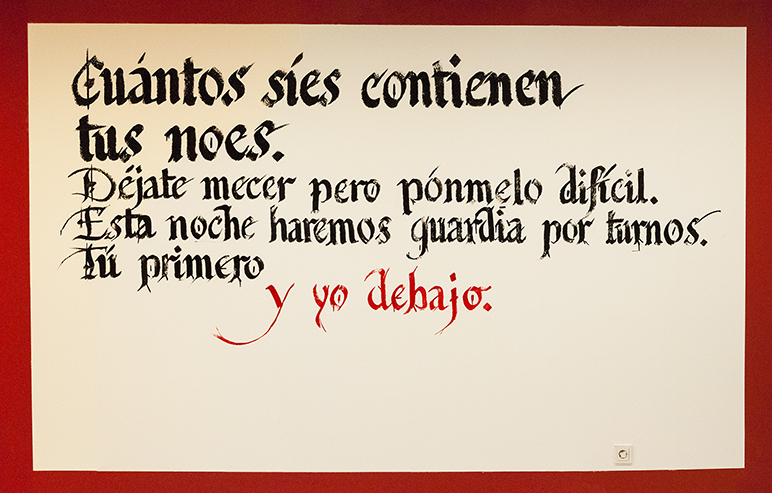 Cuántos síes contienen
tus noes.
Déjate mecer pero pónmelo difícil.
Esta noche haremos guardia por turnos.
Tú primero
y yo debajo.